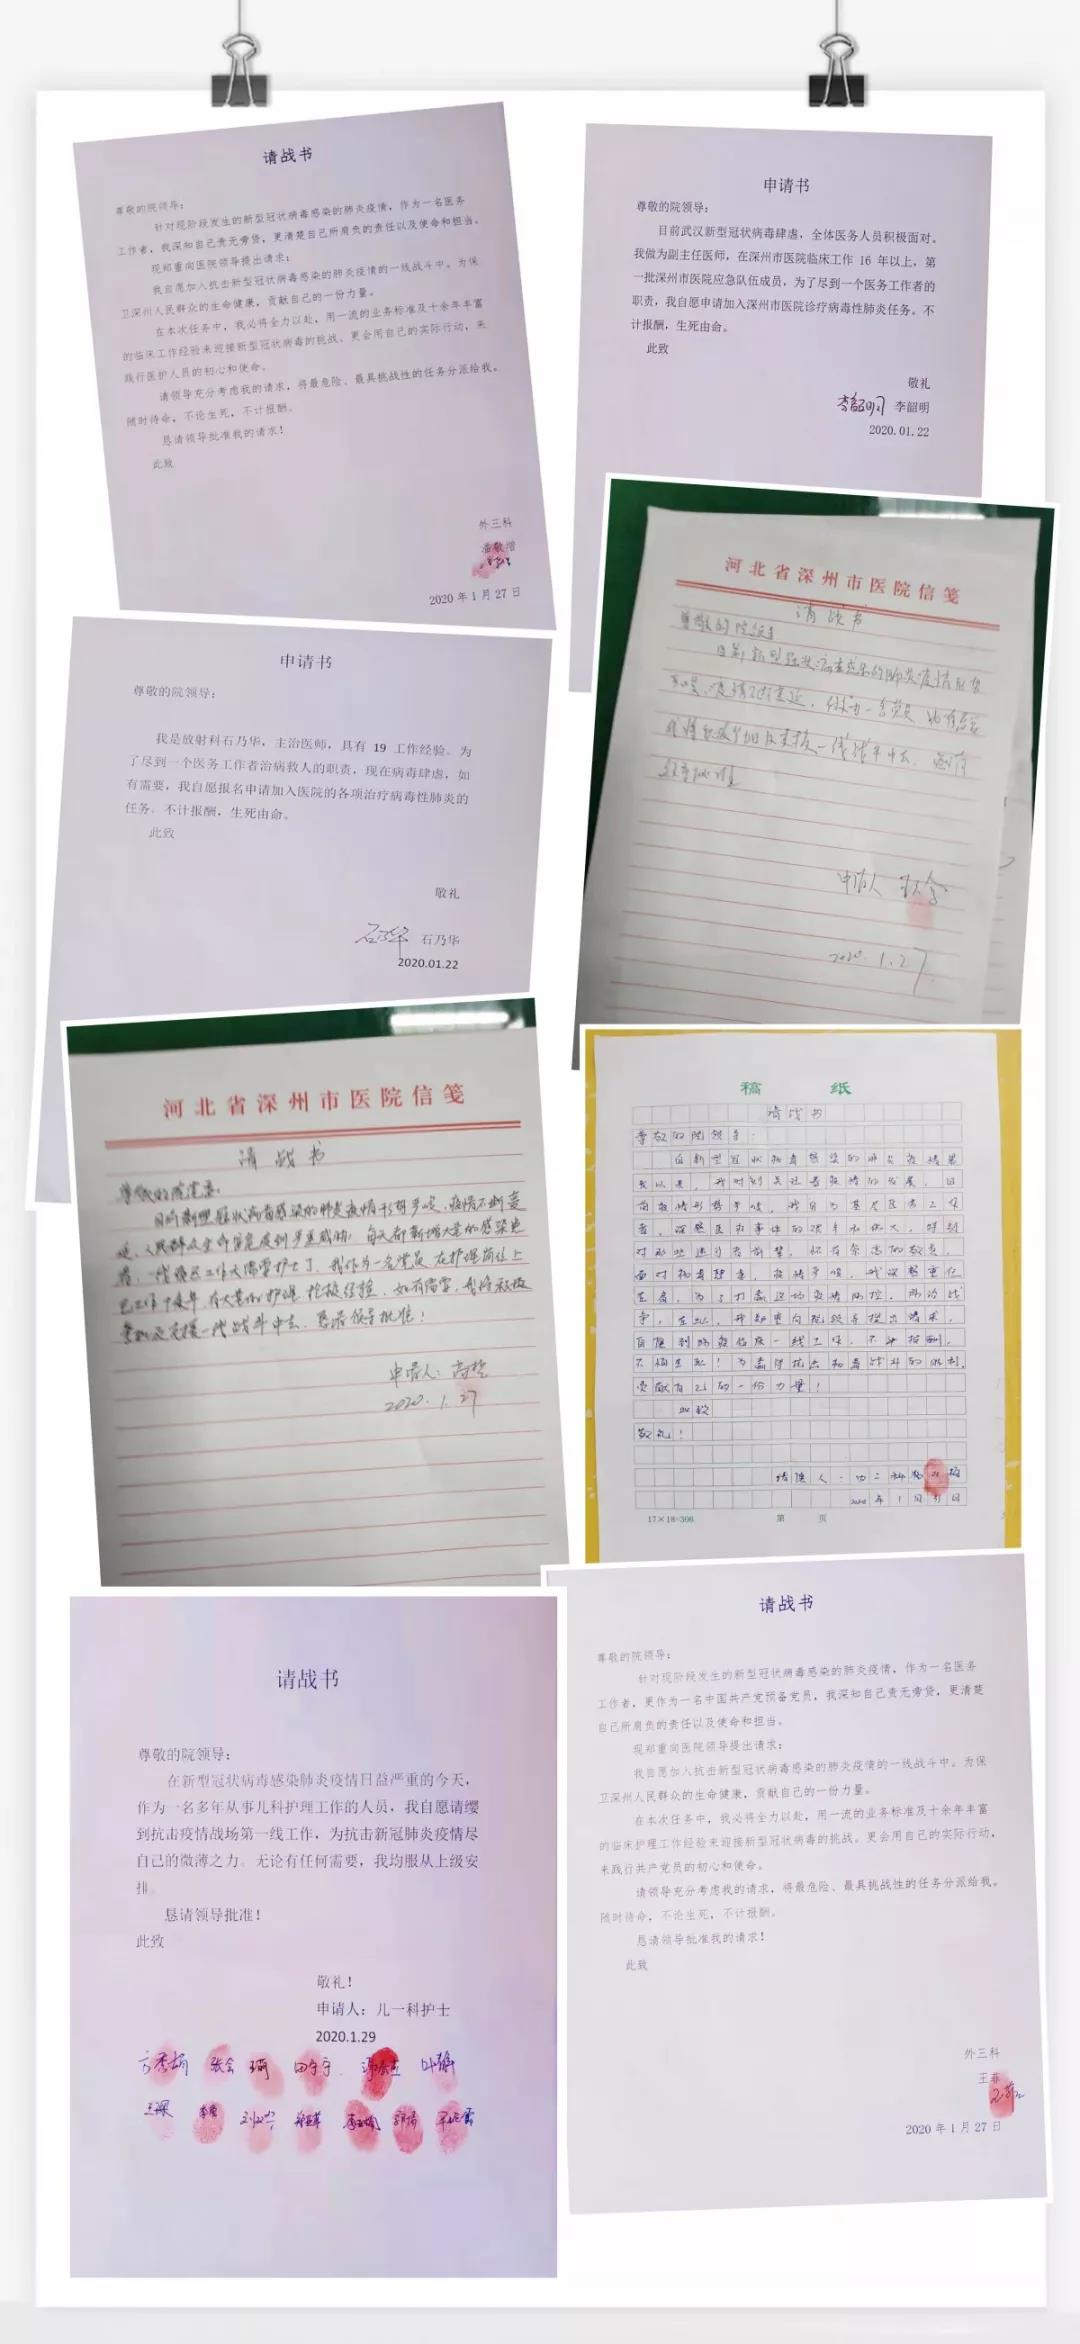 请战书
尊敬的院领导：
针对现阶段发生的新型冠状病毒感染的肺炎疫情，作为一名医务
工作者，我深知自己责无旁贷，更清楚自己所肩负的责任以及使命和担当。
现郑重向医院领导提出请求：
我自愿加入抗击新型冠状病毒感染的肺炎疫情的一线战斗中。为保
卫深州人民群众的生命健康，贡献自己的一份力量。
在本次任务中，我必将全力以赴，用一流的业务标准及十余年丰富
的临床工作经验来迎接新型冠状病毒的挑战、更会用自己的实际行动，来
践行医护人员的初心和使命。
请领导充分考虑我的请求，将最危险、最具挑战性的任务分派给我。
随时待命，不论生死，不计报酬。
恳请领导批准我的请求！
此致
外三科
潘敬增
2020 年 1 月 27 日
申请书
尊敬的院领导：
目前武汉新型冠状病毒肆虐，全体医务人员积极面对。
我做为副主任医师，在深州市医院临床工作 16 年以上，第
一批深州市医院应急队伍成员，为了尽到一个医务工作者的
职责，我自愿申请加入深州市医院诊疗病毒性肺炎任务。不
计报酬，生死由命。
此致
敬礼
李韶明 李韶明
2020.01.22
申请书
尊敬的院领导：
我是放射科石乃华，主治医师，具有 19 工作经验。为
了尽到一个医务工作者治病救人的职责，现在病毒肆虐，如
有需要，我自愿报名申请加入医院的各项治疗病毒性肺炎的
任务。不计报酬，生死由命。
此致
敬礼
石乃华 石乃华
2020.01.22
河北省深州市医院信笺
请战书
尊敬的院领导
目前新型冠状病毒感染的肺炎疫情形势
严峻，疫情不断蔓延，做为一名党员
一线战斗中去
申请人
2020.1.27.
河北省深州市医院信笺
请战书
尊敬的院领导：
目前新型冠状病毒感染的肺炎疫情形势严峻，疫情不断蔓
延，人民群众生命安危受到严重威胁，每天都新增大量的感染患
者，一线
我作为一名党员，在护理岗位上
已工作十余年，有大量的护理、抢救经验，如有需要，我将积极
参加及支援一线战斗中去，恳请领导批准！
申请人：高
2020.1.27
稿 纸
请战书
尊敬的院领导：
自新型冠状病毒感染的肺炎疫情暴
发以来，我时刻关注着疫情的发展，目
前疫情形势严峻，
面对病毒肆虐，疫情严峻，我深感责任
重大，为了打赢这场疫情防控
自愿到防疫临床一线工作，不计报酬，
不惧生死！为赢得抗击病毒战斗的胜利，
贡献自己的一份力量！
此致
敬礼！
2020年1月31日
17×18=306 第 页
请战书
尊敬的院领导：
在新型冠状病毒感染肺炎疫情日益严重的今天，
作为一名多年从事儿科护理工作的人员，我自愿请缨
到抗击疫情战场第一线工作，为抗击新冠肺炎疫情尽
自己的微薄之力。无论有任何需要，我均服从上级安
排。
恳请领导批准！
此致
敬礼！
申请人：儿一科护士
2020.1.29
张会 田宁宁 叶静
请战书
尊敬的院领导：
针对现阶段发生的新型冠状病毒感染的肺炎疫情，作为一名医务
工作者，更作为一名中国共产党预备党员，我深知自己责无旁贷，更清楚
自己所肩负的责任以及使命和担当。
现郑重向医院领导提出请求：
我自愿加入抗击新型冠状病毒感染的肺炎疫情的一线战斗中。为保
卫深州人民群众的生命健康，贡献自己的一份力量。
在本次任务中，我必将全力以赴，用一流的业务标准及十余年丰富
的临床护理工作经验来迎接新型冠状病毒的挑战。更会用自己的实际行动，
来践行共产党员的初心和使命。
请领导充分考虑我的请求，将最危险、最具挑战性的任务分派给我。
随时待命，不论生死，不计报酬。
恳请领导批准我的请求！
此致
外三科
王菲
王菲
2020 年 1 月 27 日